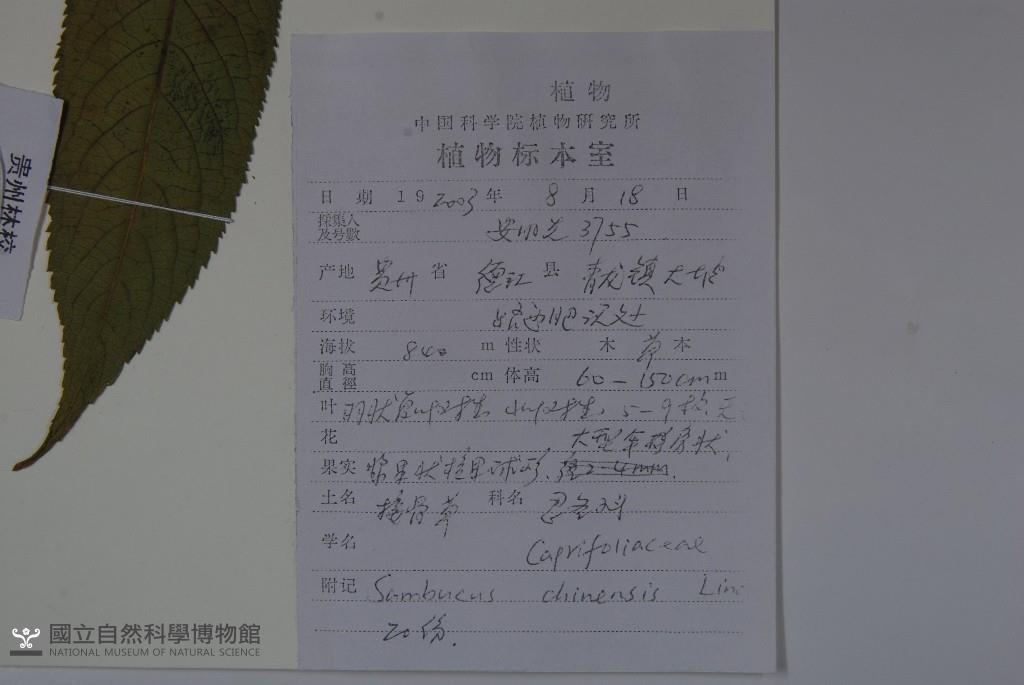 植物
中国科学院植物研究所
植物标本室
日期 19 2003 年 8 月 18 日
採集人及号數 安明先 3755
产地 贵州 省 德江 县 青龙镇大堰
环境 路边肥沃处
海拔 840 m 性状 木 草 本
胸高直徑 cm 体高 60-150cm m
叶 羽状复叶对生 小叶对生, 5-9枚, 无
花 大型伞房状,
果实 浆果状核果球形,
土名 接骨草 科名 忍冬科
学名 Caprifoliaceae
附记 Sambucus chinensis Lin
20份.
贵州林校
國立自然科學博物館
NATIONAL MUSEUM OF NATURAL SCIENCE